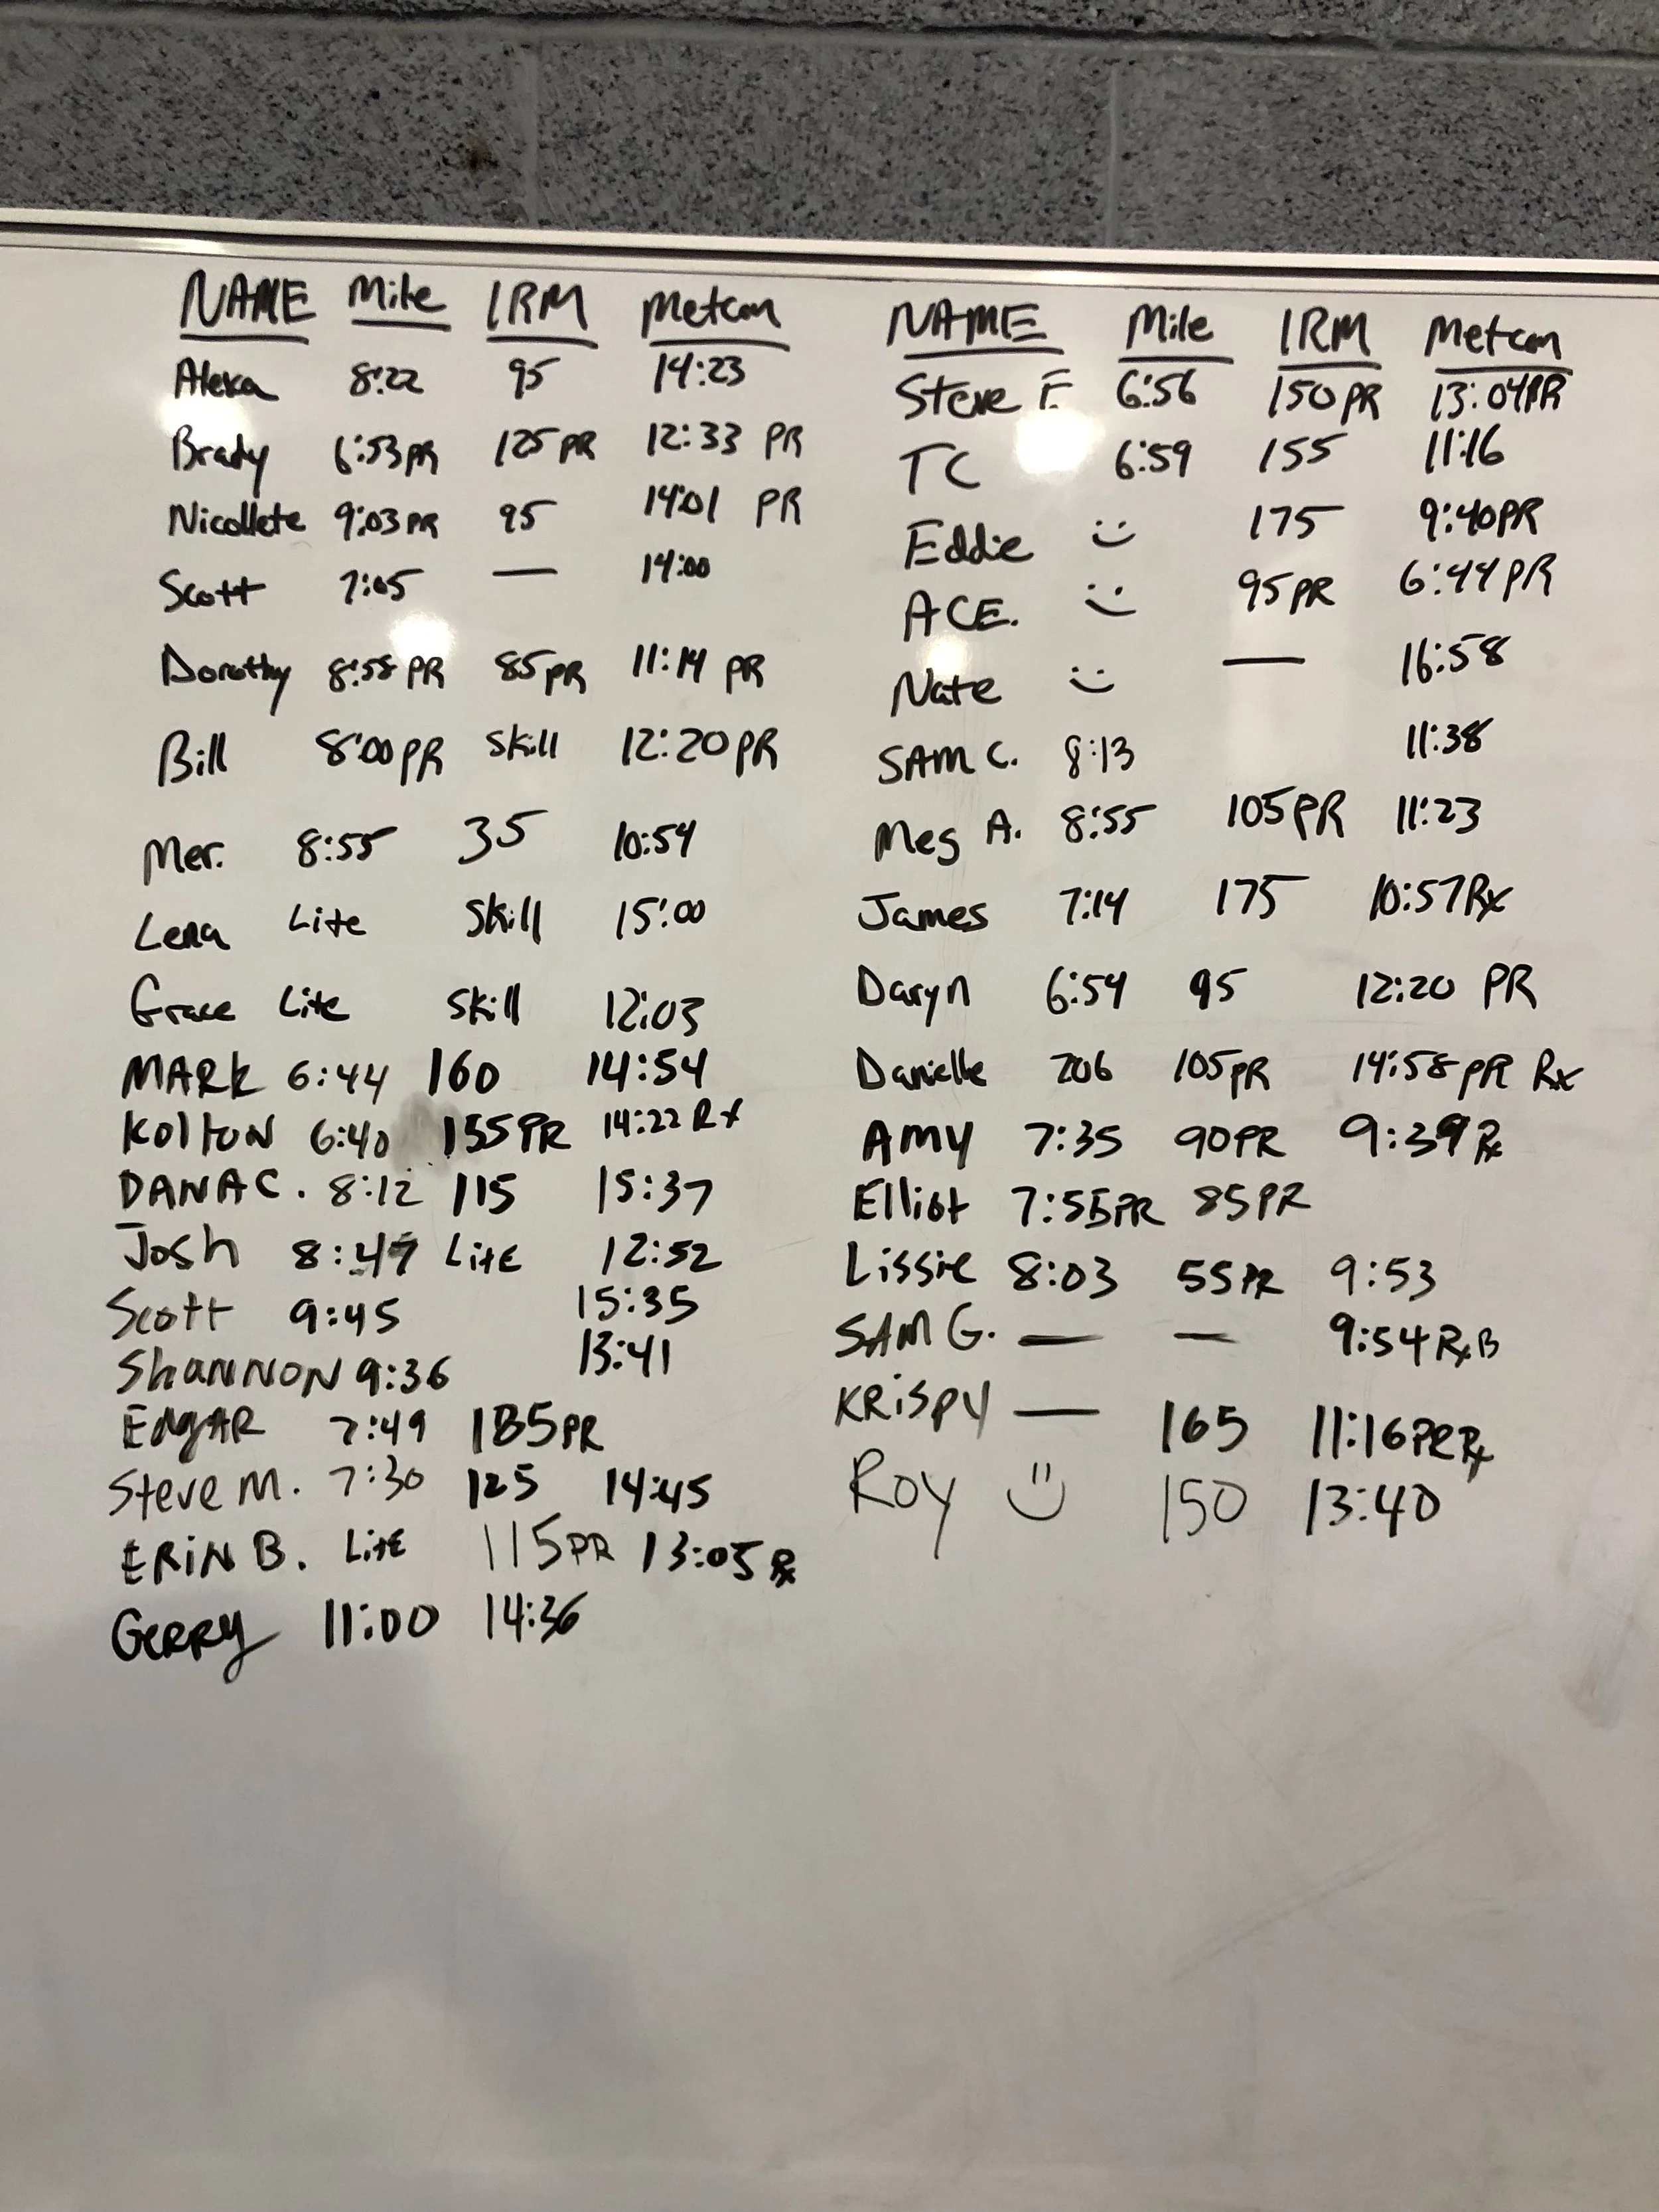 NAME Mile 1RM Metcon
Alexa 8:22 95 14:23
Brady 6:53 PR 125 PR 12:33 PR
Nicollete 9:03 PR 95 14:01 PR
Scott 7:05 — 14:00
Dorothy 8:58 PR 85 PR 11:14 PR
Bill 8:00 PR Skill 12:20 PR
Mer. 8:55 35 10:54
Lena Lite Skill 15:00
Grace Lite Skill 12:03
MARK 6:44 160 14:54
KOLTON 6:40 155 PR 14:22 Rx
DANA C. 8:12 115 15:37
Josh 8:47 LitE 12:52
Scott 9:45 15:35
ShANNON 9:36 13:41
EdgAR 7:49 185 PR
Steve M. 7:30 125 14:45
ERiN B. LitE 115 PR 13:05 Rx
GERRY 11:00 14:36
NAME Mile 1RM Metcon
Steve F. 6:56 150 PR 13:04 PR
TC 6:59 155 11:16
Eddie :) 175 9:40 PR
ACE. :) 95 PR 6:44 PR
Nate :) — 16:58
SAM C. 8:13 11:38
Meg A. 8:55 105 PR 11:23
James 7:14 175 10:57 Rx
Daryn 6:54 95 12:20 PR
Danielle 706 105 PR 14:58 PR Rx
AMY 7:35 90 PR 9:39 Rx
Elliot 7:55 PR 85 PR
Lissie 8:03 55 PR 9:53
SAM G. — — 9:54 Rx B
KRiSPY — 165 11:16 PR Rx
ROY :) 150 13:40